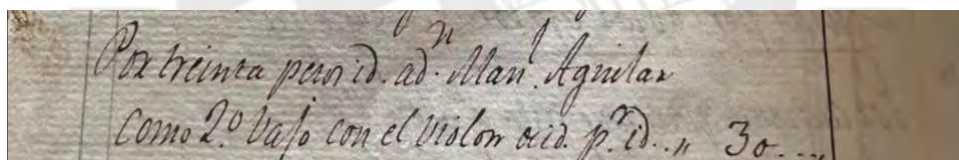 Por treinta pesos id. a dn. Manl. Aguilar
Como 2º. bajo con el violon id. pr. id... 30....